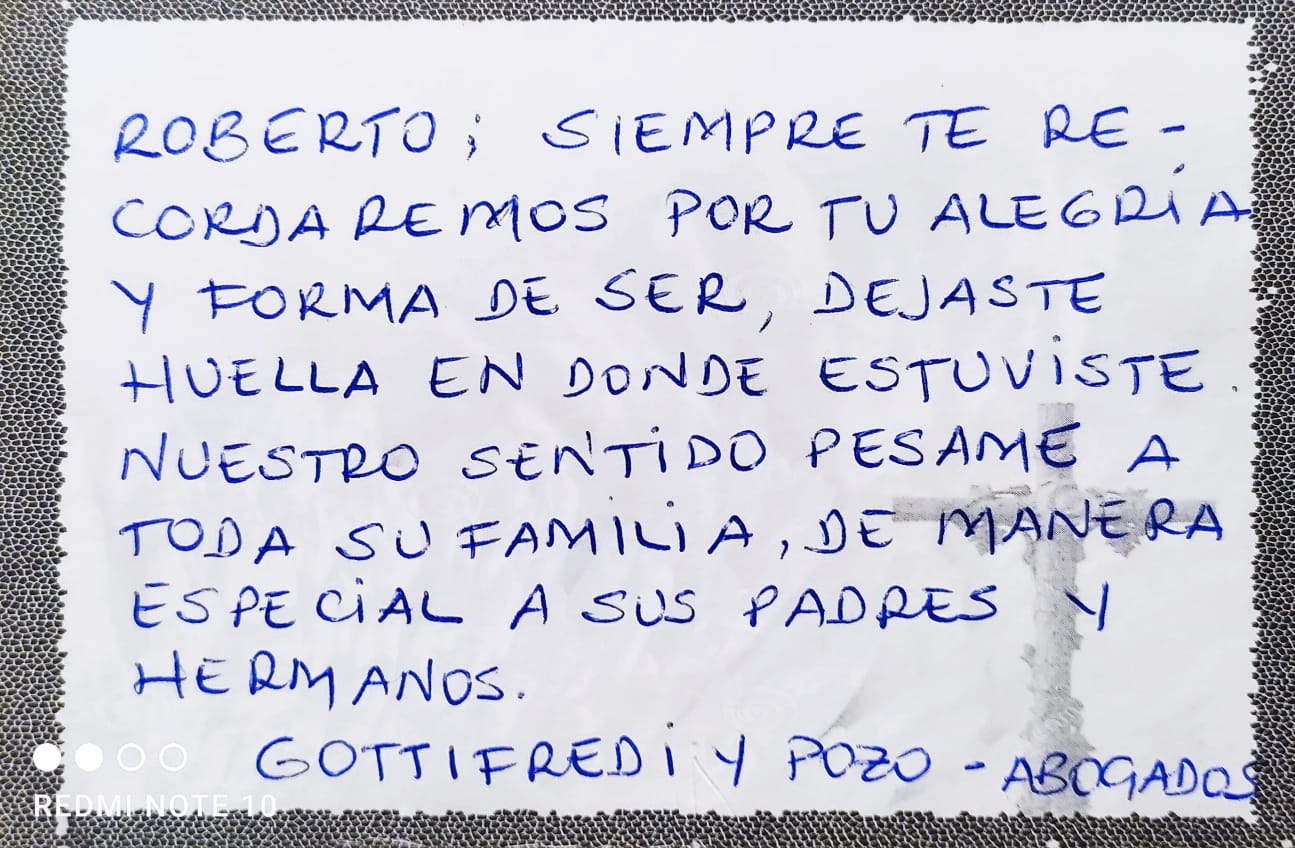 ROBERTO; SIEMPRE TE RE-
CORDAREMOS POR TU ALEGRÍA
Y FORMA DE SER, DEJASTE
HUELLA EN DONDE ESTUVISTE.
NUESTRO SENTIDO PESAME A
TODA SU FAMILIA, DE MANERA
ESPECIAL A SUS PADRES Y
HERMANOS.
GOTTIFREDI Y POZO - ABOGADOS
REDMI NOTE 10